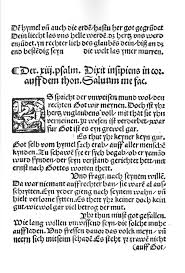 Dē hymel vñ auch die erdē/hastu her gar gegründet
Dein liecht las vns helle werdē ds hertz vns werd
entzüdt/yn rechter lieb des glaubēs dein/biß an ds
end bestēdig sein die welt las ymer murren.
Der. xiij. psalm. Dixit insipiens in cor.
auff den thon. Saluum me fac.
ES spricht der vnweysen mund wol/den
rechten Got wir meynen. Doch ist yhr
hertz vnglaubens vol/mit that sie yhn
verneynen. Jr wesen ist verderbet zwar
fur Got ist es eyn grewel gar.
Es thut yhr keyner keyn gut.
Got selb vom hymel sach herab/auff aller mensche
kynden. Zu schawē sich er sich begab/ob er yemād
wurd fynden/der seyn verstand gerichtet hett/mit
ernst nach Gottes worten thett.
Vnd fragt nach seynem wille.
Da war niemant auff rechter ban/sie warē al auß
schritten. Eyn yeder gieng nach seynem wahn/vñ
hielt verlorne sitten. Es thett yhr keiner doch keyn
gut/wie wol gar viel betrog der mut.
Yhr thun must got gefallen.
Wie lang wollen vnwissend seyn/die solche muhe
auffladen. Vnd fressen dauor das volck meyn/vñ
neern sich mit seim schadē. Es steht yr trawē nicht
(auff Got/